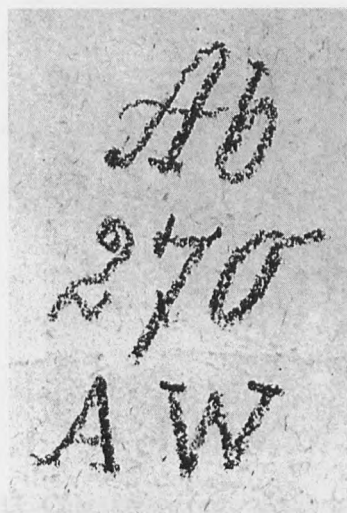 Ab
270
A W